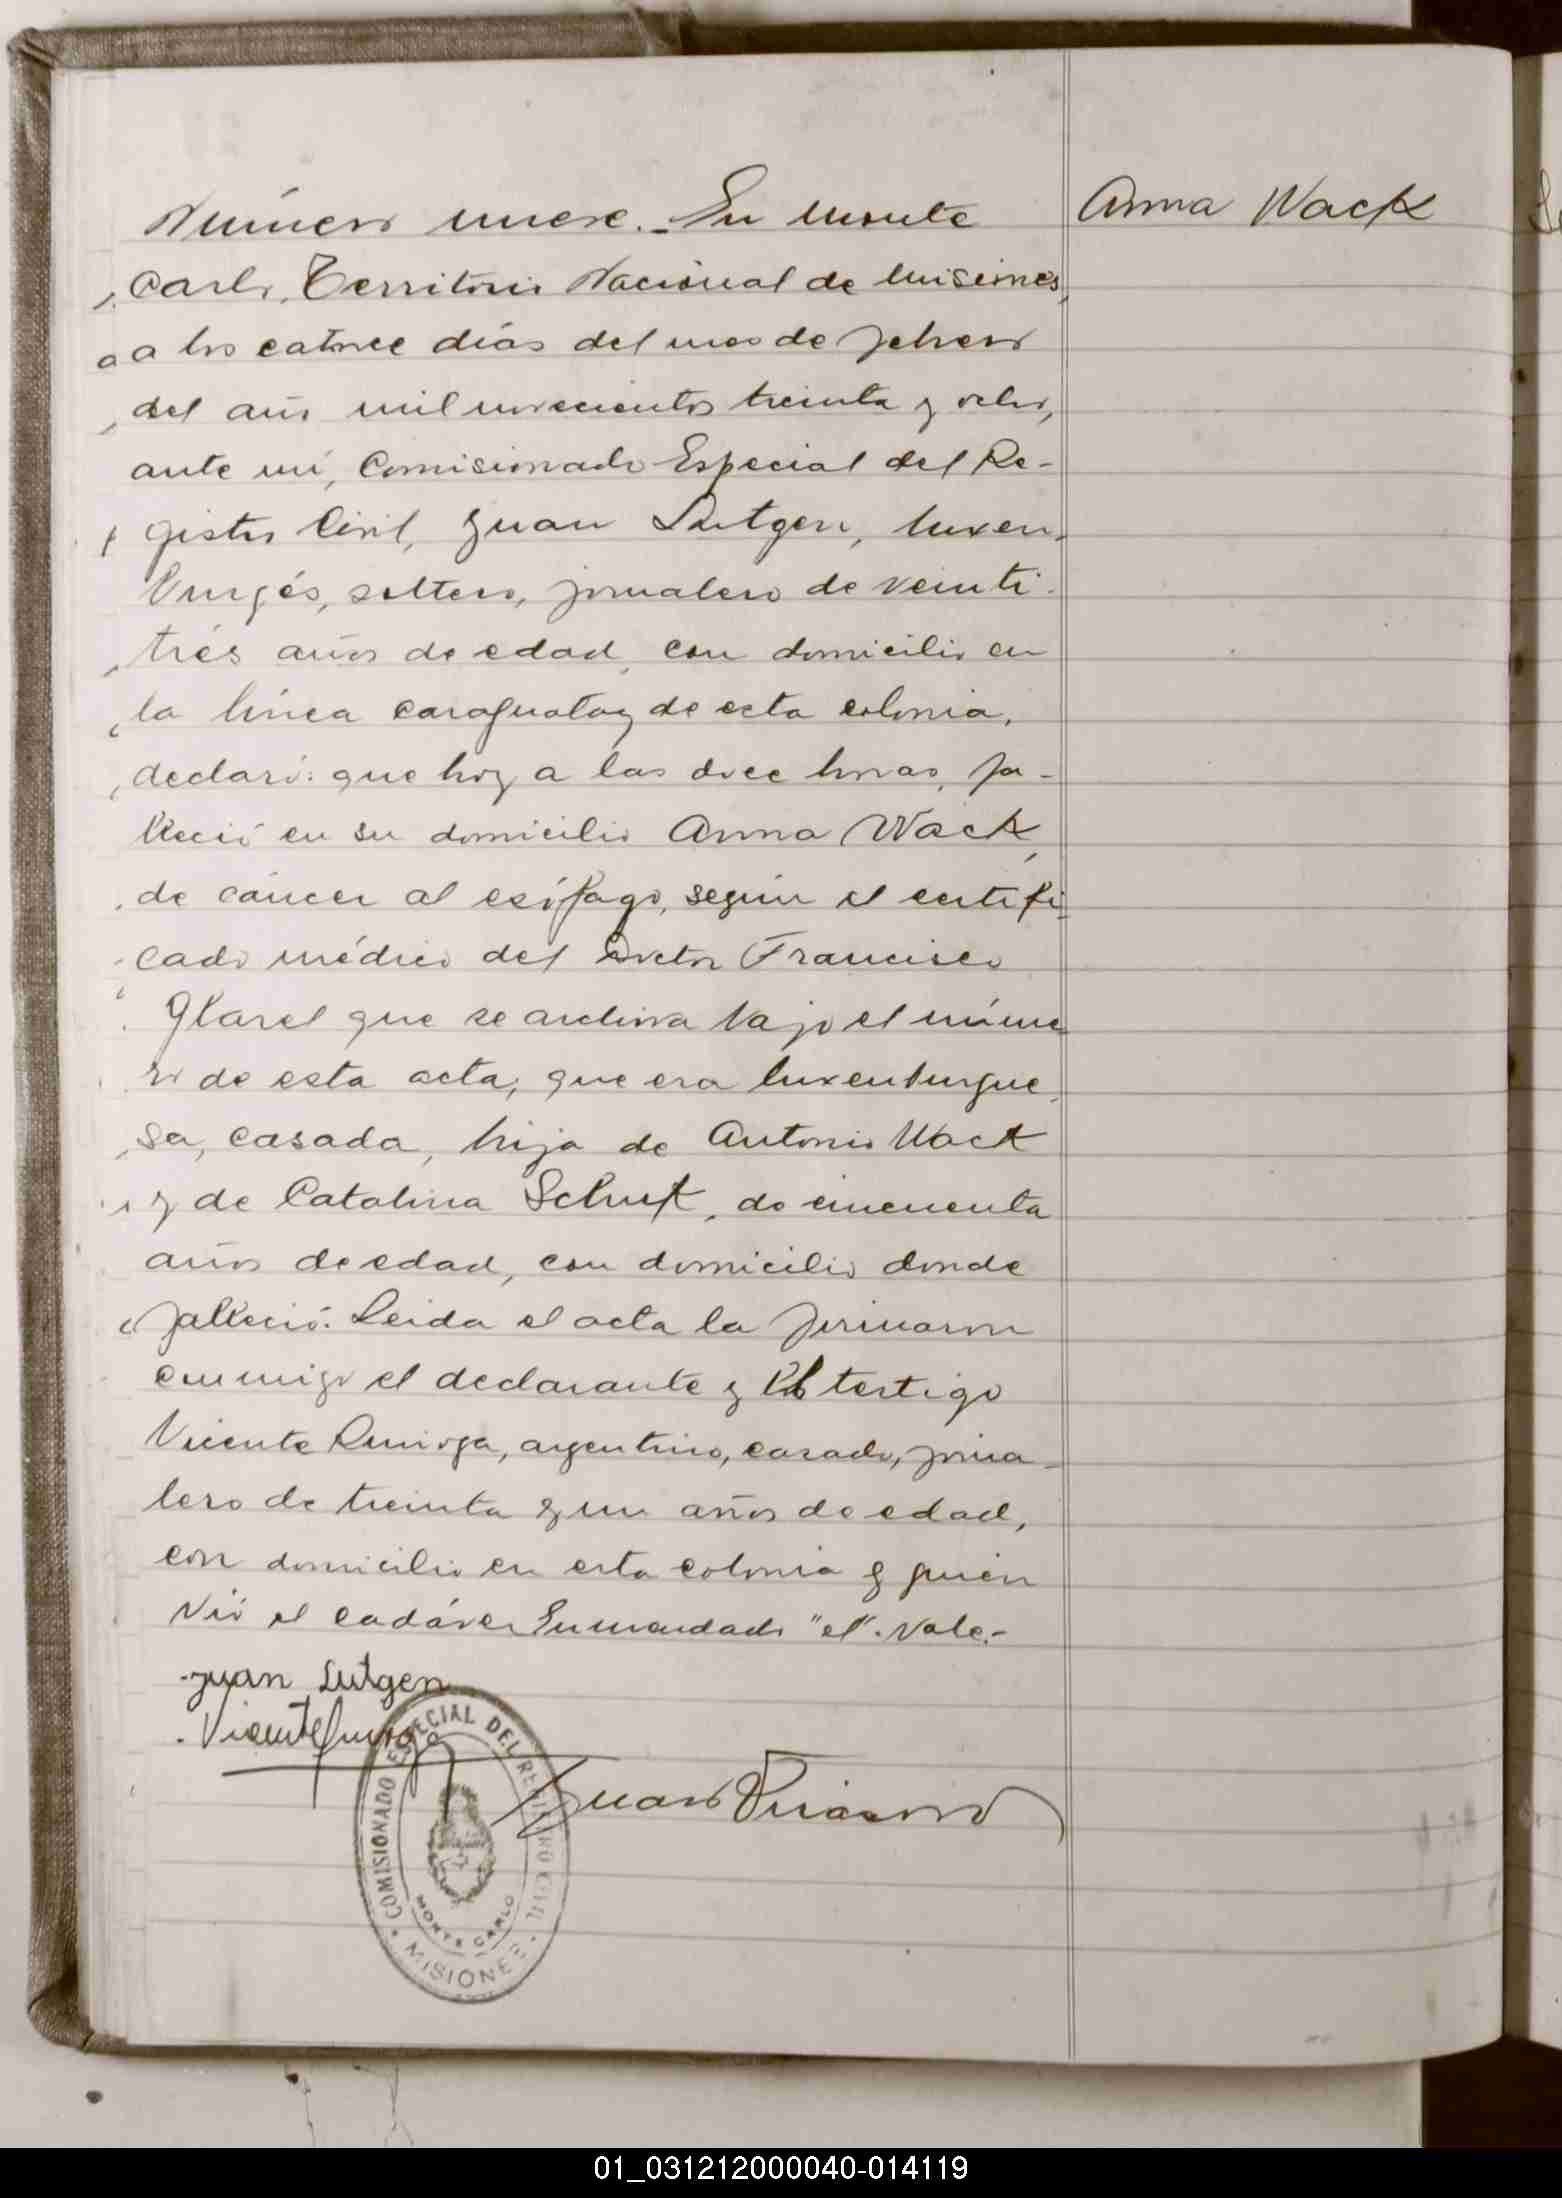 Número nueve.- En Monte
Anna Wack
Carlo, Territorio Nacional de Misiones,
a los catorce días del mes de febrero
del año mil novecientos treinta y ocho,
ante mí, Comisionado Especial del Re-
gistro Civil, Juan Lutgen, luxem-
burgés, soltero, jornalero de veinti-
trés años de edad, con domicilio en
la línea Caraguatay de esta colonia,
declaró: que hoy a las doce horas, fa-
lleció en su domicilio Anna Wack,
de cáncer al esófago, según el certifi-
cado médico del Doctor Francisco
que se archiva bajo el núme
ro de esta acta, que era luxemburgue
sa, casada, hija de Antonio Wack
y de Catalina de cincuenta
años de edad, con domicilio donde
falleció. Leida el acta la firmaron
conmigo el declarante y el testigo
Vicente Quiroga, argentino, casado, jorna-
lero de treinta y un años de edad,
con domicilio en esta colonia y quien
vió el cadáver Enmendado "el". Vale.-
Juan Lutgen
Vicente Quiroga
Juan
COMISIONADO ESPECIAL DEL REGISTRO CIVIL
MONTE CARLO
MISIONES
01_031212000040-014119